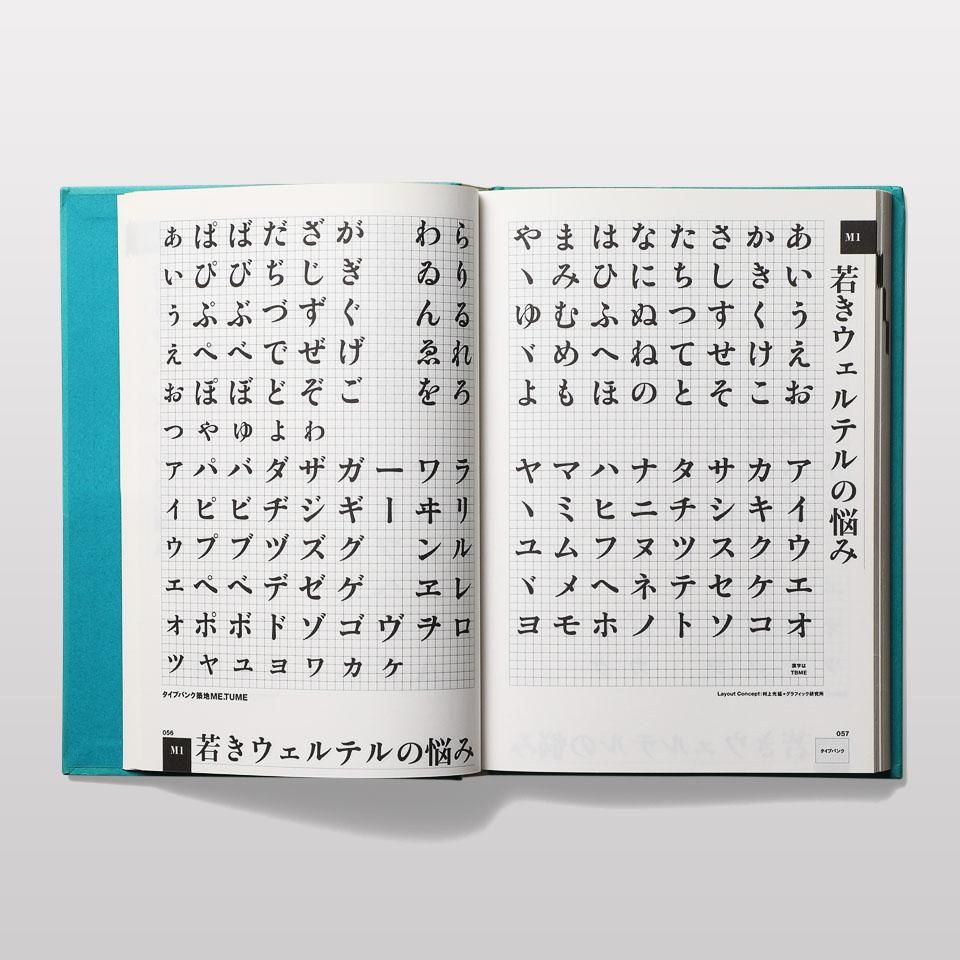 M1
若きウェルテルの悩み
あいうえお
かきくけこ
さしすせそ
たちつてと
なにぬねの
はひふへほ
まみむめも
やゝゆゞよ
アイウエオ
カキクケコ
サシスセソ
タチツテト
ナニヌネノ
ハヒフヘホ
マミムメモ
ヤヽユヾヨ
漢字は
TBME
Layout Concept:村上光延+グラフィック研究所
057
タイプバンク
らりるれろ
わゐんゑを
がぎぐげご
ざじずぜぞゎ
だぢづでどょ
ばびぶべぼゅ
ぱぴぷぺぽゃ
ぁぃぅぇぉっ
ラリルレロ
ワヰンヱヲ
ー｜ヴヶ
ガギグゲゴヵ
ザジズゼゾヮ
ダヂヅデドョ
バビブベボュ
パピプペポャ
ァィゥェォッ
タイプバンク築地ME.TUME
056
M1
若きウェルテルの悩み